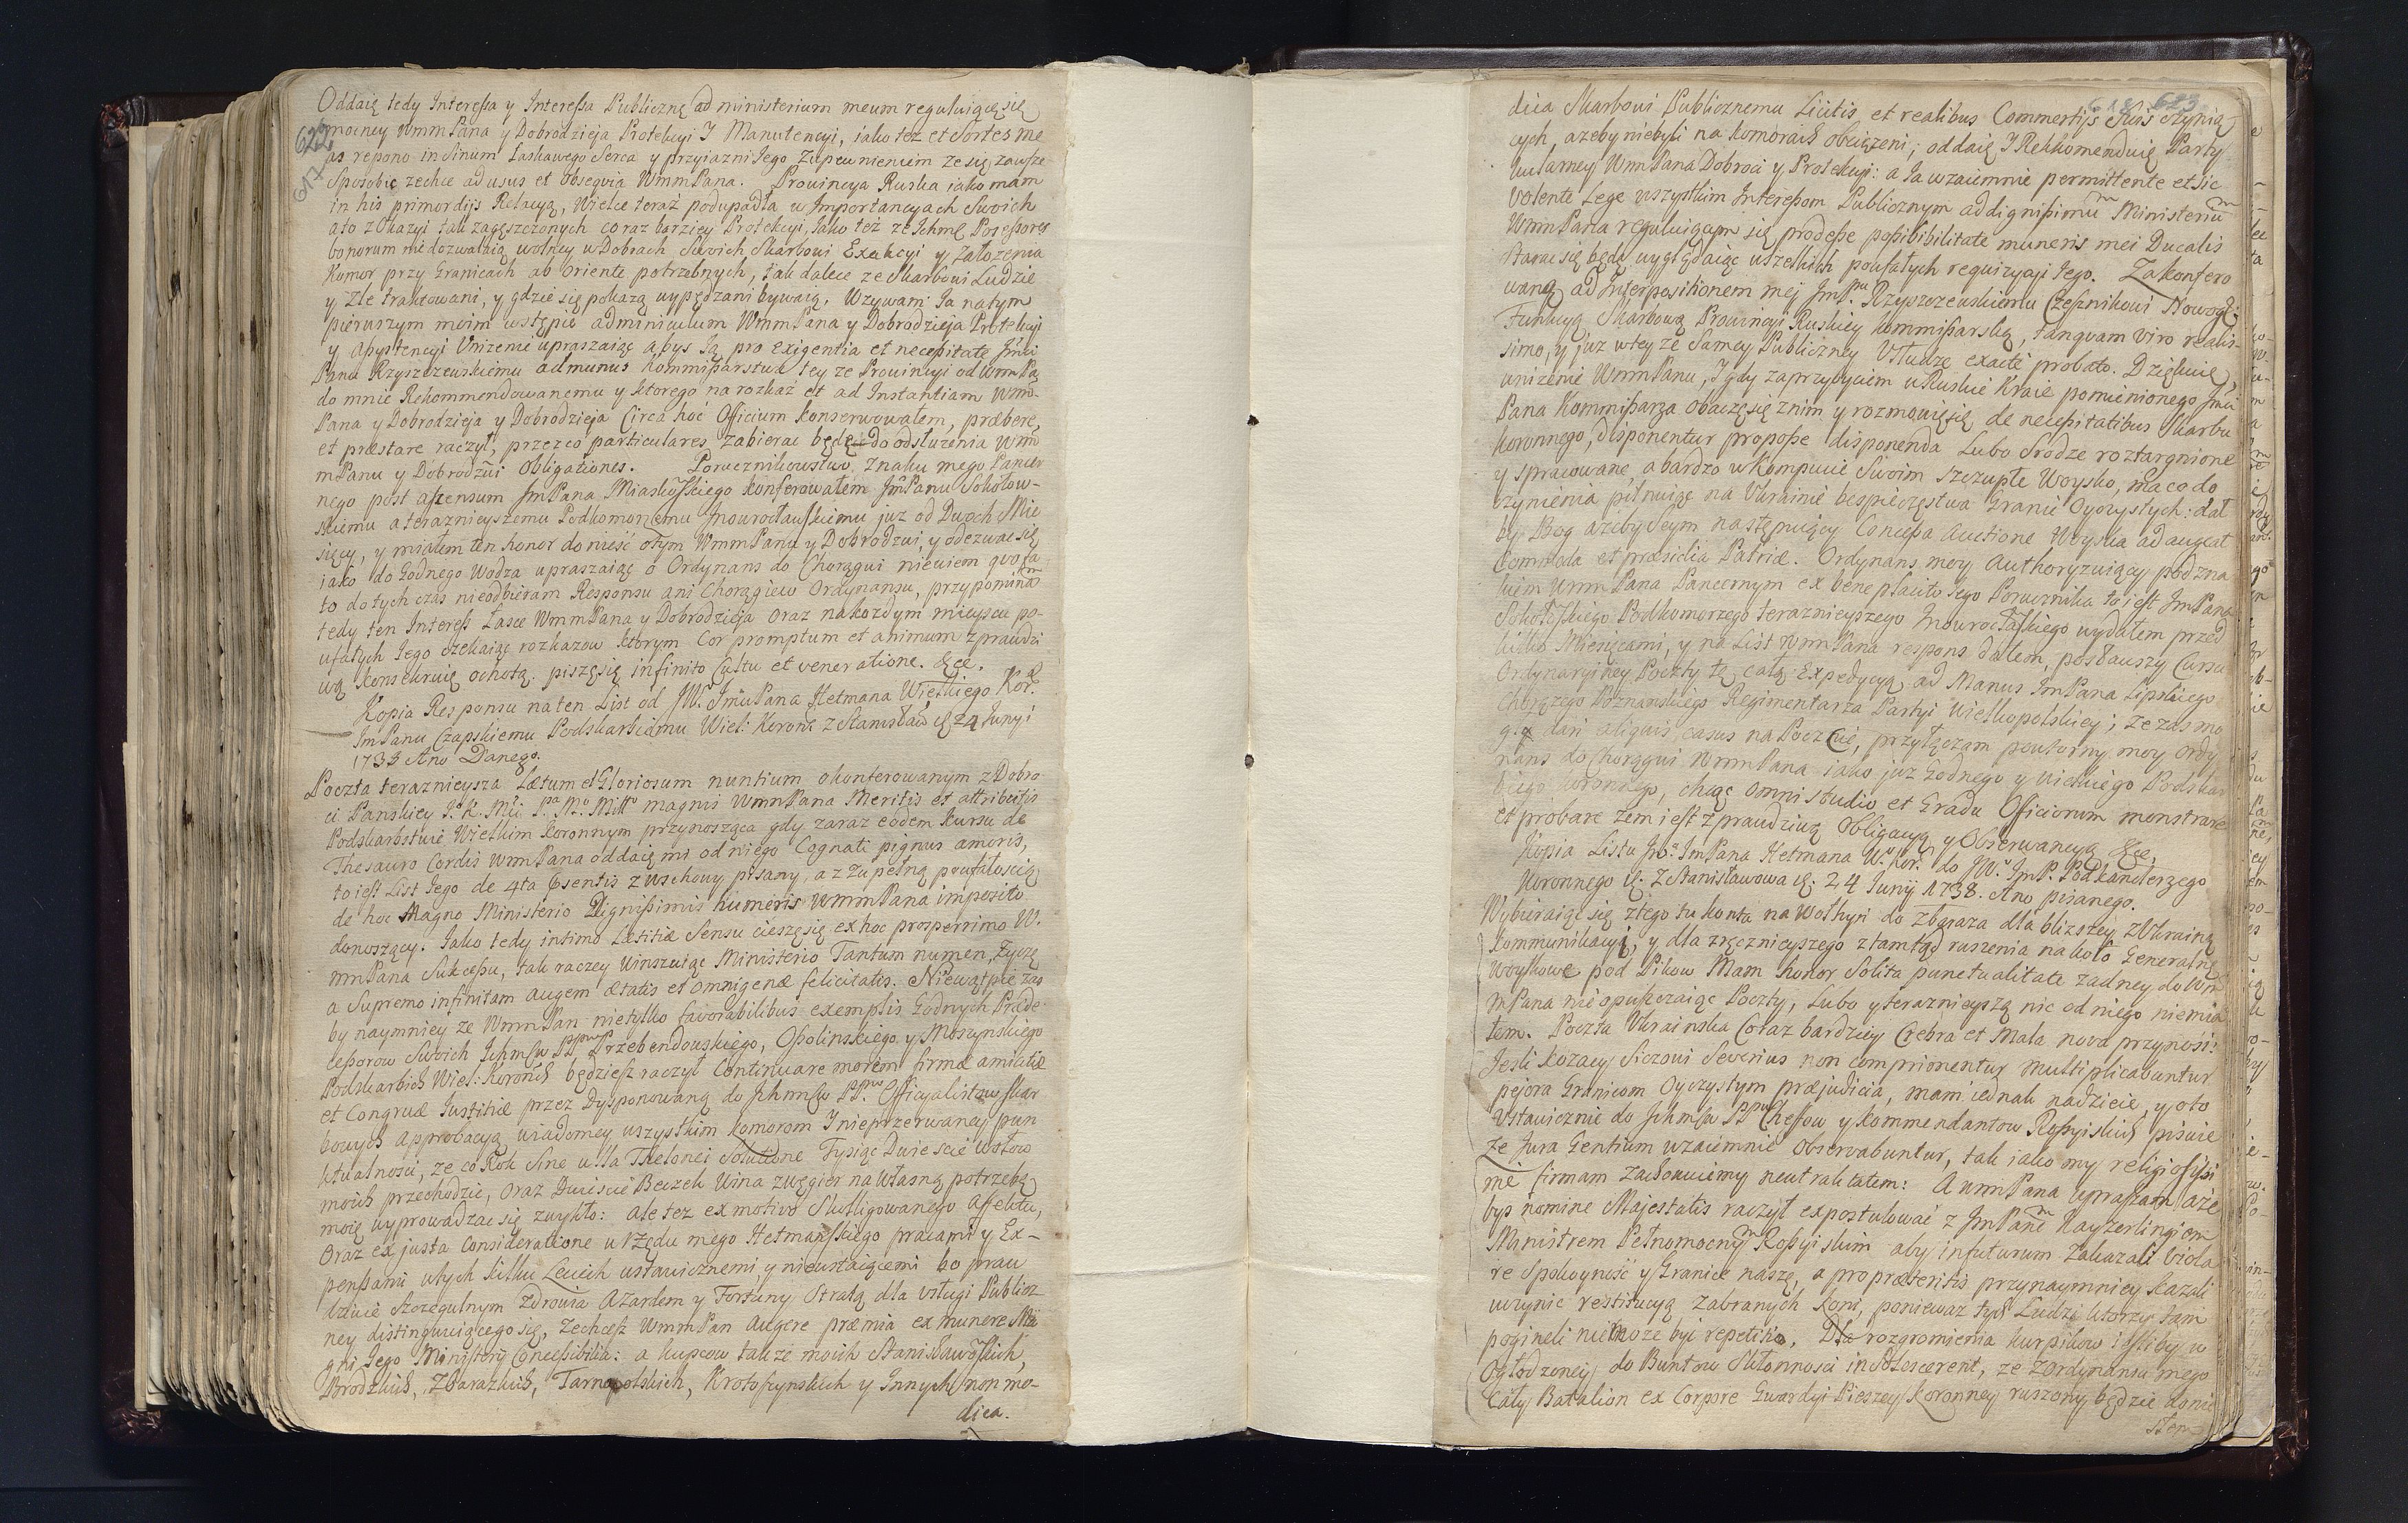 622
617
Oddaię tedy Interessa y Interessa Publiczne ad ministerium meum reguluiące się
mocney WmmPana y Dobrodzieja Protekcyi I Manutencyi, iako też et Sortes me
as repono in Sinum Łaskawego Serca y przyiazni Jego Zupewnieniem ze się zawsze
Sposobię zechce ad usus et obsequia WmmPana. Prowincya Ruska iako mam
in his primordijs Relacyą, Wielce teraż podupadła w Importancyach Swoich
a to z okazyi tak zagęszczonych coraz barziey Protekcyi, Jako też ze Ichmę Possessores
bonorum nie dozwalaią wolney w Dobrach Swoich Skarbowi Exakcyi y Założenia
Komor przy Granicach ab oriente potrzebnych, tak dalece ze Skarbowi Ludzie
y Zle traktowani, y gdzie się pokażą wypędzani bywaią. Wzywam Ja natym
pierwszym moim wstępie adminiculum WmmPana y Dobrodzieja Protekcyi
y Assystencyi Unizenie upraszaiąc abyś Ją pro exigentia et necessitate Jmći
Panu Rzyszczewskiemu ad munus Kommissarstwa tey ze Prowincyi od WmmPa
do mnie Rekommendowanemu y ktorego na rozkaż et ad Instantiam Wm-
Pana y Dobrodzieja y Dobrodzieja Circa hoc Officium konserwowałem, præbere,
et præstare raczył, przez co particulares zabierac będę do odsłużenia Wm
mPanu y Dobrodzui Obligationes. Porucznikowstwo Znaku mego Pancer
nego post assensum JmPana Miaskowskiego konferowałem JmPanu Sokołow-
skiemu a teraznieyszemu Podkomorzemu Inowrocławskiemu juz od Dwoch Mie
sięcy, y miałem ten honor donieść o tym WmmPanu y Dobrodzui, y odezwac się
iako do Godnego Wodza upraszaiąc o Ordynans do Chorągwi niewiem quo fa
to dotychczas nieodbieram Responsu ani Chorągiew Ordynansu, przypomina
tedy ten Interess Łasce WmmPana y Dobrodzieja oraz nakozdym mieyscu po-
ufałych Jego czekaiąc rozkazow ktorym Cor promptum et animum zprawdzi
wą konsekruię ochotą. piszę się infinito Cultu et veneratione. &ce.
Kopia Responsu na ten List od JW. JmćiPana Hetmana Wielkiego Kor.
JmPanu Czapskiemu Podskarbiemu Wiel: Koronę z Stanisław 24 Junyi
1738 Ano Danego.
Poczta teraznieysza Lætum et Gloriosum nuntium o konferowanym z Dobro
ci Panskiey J. K. Mći magnis WmmPana Meritis et attributis
Podskarbstwie Wielkim Koronnym przynosząca gdy zaraz eodem kursu de
Thesauro Cordis WmmPana oddaię mi od niego Cognati pignus amoris,
to iest List Jego de 4ta præsentis z Wschowy pisany, a z zupełną poufałoscią
de hoc Magno Ministerio Dignissimis humeris WmmPana imposito
donoszący. Jako tedy intimo Lætitiæ Sensu ciesze się ex hoc prosperrimo W.
mmPana Sukcessu, tak raczey Winszuiąc Ministerio Tantum numen, Życzę
a Supremo infinitam augem ætatis et omnigenæ felicitatis. Niewątpię zas
by naymniey ze WmmPan nietylko favorabilibus exemplis Godnych Præde
cessorow Swoich Ichmśw PP. Przebendowskiego, Ossolinskiego y Moszynskiego
Podskarbich Wiel: Koronnych będziesz raczył Continuare morem firmæ amicitiæ
et Congruæ Justitiæ przez Dysponowaną do Ichmśw PP. Officyalistow Skar
bowych Approbacyą wiadomey wszystkim Komorom I nieprzerwaney pun
ktualnosci, ze co Rok Sine ulla Thelonei Solutione Tysiąc Dwiescie wołow
moich przechodzic, oraz Dwiescie Beczek Wina zwęgier na własną potrzebę
moię wyprowadzac się zwykło: ale tez ex motivo Skolligowanego Affektu,
oraz ex justa Consideratione urzędu mego Hetmanskiego pracami y Ex-
pensami w tych kilku Leciech ustawicznemi y nieustaiącemi bo praw
dziwie Szczegulnym Zdrowia Azardem y Fortuny Stratą dla usługi Publicz
ney distinguuiącego się, Zechcesz WmmPan augere præmia ex munere Ma
gni Jego Ministerij Concessibilia: a kupcow takze moich Stanisławowskich,
Brodzkich, Zbarazkich, Tarnopolskich, Krotoszynskich y Innych non mo-
dica.
618 623
dica Skarbowi Publicznemu Licitis et realibus Commertijs Suis czynią
cych, ażeby niebyli na Komorach obciążeni; oddaię I Rekkomenduię Party
kularney WmmPana Dobroci y Protekcyi: a Ja wzaiemnie permittente et sic
volente Lege wszystkim Interessom Publicznym ad dignissimum Ministerium
WmmPana reguluiącym się prodesse possibilitate muneris mei Ducalis
Starac się będę wyglądaiąc wszelkich poufałych requizycyi Jego. Za konfero
waną ad Interpositionem mej JmP. Rzyszczewskiemu Cześnikowi Nowogr:
Funkcyą Skarbową Prowincyi Ruskiey Kommissarską, tanquam viro realis-
simo, y juz w tey ze Samey Publiczney Usłudze exacte probato. Dziękuię
unizenie WmmPanu, I gdy zaprzybyciem w Ruskie Kraie pomienionego Jmći
Pana Kommissarza obaczę się z nim y rozmowię się de necessitatibus Skarbu
koronnego, disponentur propose disponenda. Lubo Srodze roztargnione
y spracowane, a bardzo w Kompucie Swoim szczupłe Woysko, ma co do
czynienia pilnuiąc na Ukrainie bespieczęstwa Granic Oyczystych: dał
by Bog ażeby Seym następuiący Concessa Auctione Woyska adaugeat
Commoda et præsidia Patriæ. Ordynans moy Authoryzuiący pod zna
kiem WmmPana Pancernym ex beneplacito Jego Porucznika to iest JmPana
Sokołowskiego Podkomorzego teraznieyszego Inowrocławskiego wydałem przed
kilko Miesięcami, y na List WmmPana respons dałem, posławszy Cursu
Ordynaryiney Poczty tę całą Expedycyą ad Manus JmPana Lipskiego
Chorążego Poznanskiego Regimentarza Partyi Wielkopolskiey; ze zas mo
gą dari aliquis casus na Poczcie, przyłączam powtorny moy ordy
nans do Chorągwi WmmPana iako juz Godnego y Wielkiego Podskar
biego koronnego, chcąc omni studio et Gradu Officiorum monstrare
et probare zem iest z prawdziwą Obligacyą y Obserwancyą &ce.
Kopia Listu JW. JmPana Hetmana W. Kor. do JW. JmP. Podkanclerzego
Koronnego z Stanisławowa 24 Junij 1738. Ano pisanego.
Wybieraiąc się ztego tu konta na Wołhyń do Zbaraza dla blizszey z Ukrainą
Kommunikacyi, y dla zręcznieyszego z tamtąd ruszenia na koło Generalne
woyskowe pod Pikow Mam honor Solita punctualitate zadney do Wm
mPana nie opuszczaiąc Poczty, Lubo y teraznieyszą nic od niego niemia
łem. Poczta Ukrainska Coraz bardziey Crebra et Mala nova przynosi:
Jesli kozacy Siczowi Severius non comprimentur multiplicabuntur
pejora Granicom Oyczystym præjudicia, mam iednak nadzieie, y oto
Ustawicznie do Ichmśw PP. Cheffow y Kommendantow Rossyiskich piszę
Ze Jura Gentium wzaiemnie observabuntur, tak iako my religiosissi
me firmam Zachowuiemy neutralitatem: A WmmPana upraszam aze
byś nomine Majestatis raczył expostulować z JmPanem Kayzerlingiem
Ministrem Pełnomocnym Rossyiskim aby in futurum Zakazali viola
re Spokoyność y Granice naszę, a pro præteritis przynaymniey kazali
uczynic restitucyą Zabranych Koni, poniewaz tych Ludzi ktorzy tam
pogineli niemoze być repetitio. Dla rozgromienia kurpikow iesliby w
Ogłodzoney do Buntow Skłonnosci insolescerent, ze zordynansu mego
Cały Batalion ex Corpore Gwardyi Pieszey Koronney ruszony będzie donio
słem